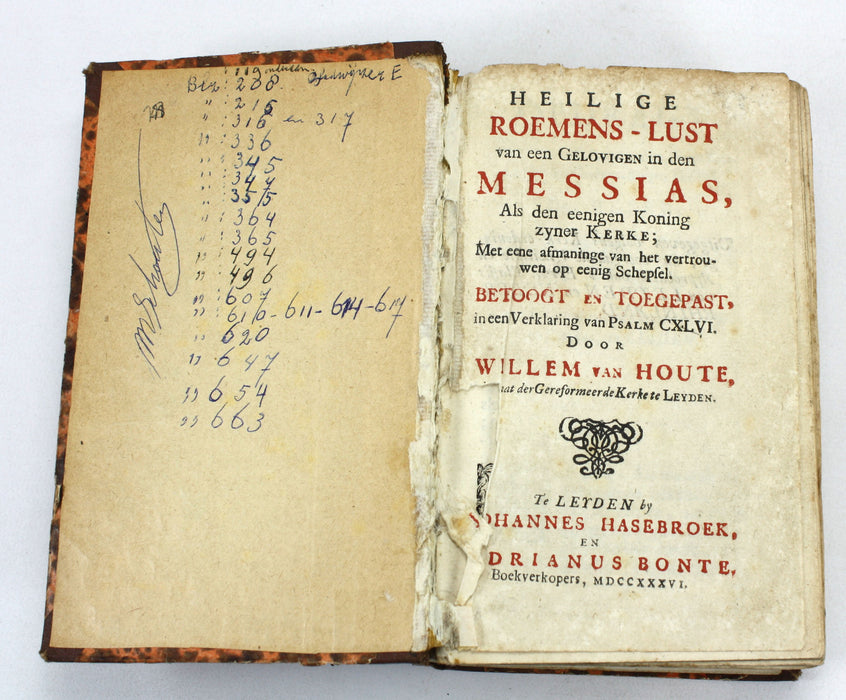 Blz : 208.
" : 215
" : 316 en 317
" : 336
" : 345
" : 347
" : 355
" : 364
" : 365
" : 494
" : 496
" : 607
" : 610 - 611 - 614 - 617
" : 620
" 647
" 654
" 663
M Schouten
HEILIGE
ROEMENS - LUST
van een GELOVIGEN in den
MESSIAS,
Als den eenigen Koning
zyner KERKE;
Met eene afmaninge van het vertrou-
wen op eenig Schepsel.
BETOOGT EN TOEGEPAST,
in een Verklaring van PSALM CXLVI.
DOOR
WILLEM VAN HOUTE,
aat der Gereformeerde Kerke te LEYDEN.
Te LEYDEN by
JOHANNES HASEBROEK,
EN
DRIANUS BONTE,
Boekverkopers, MDCCXXXVI.